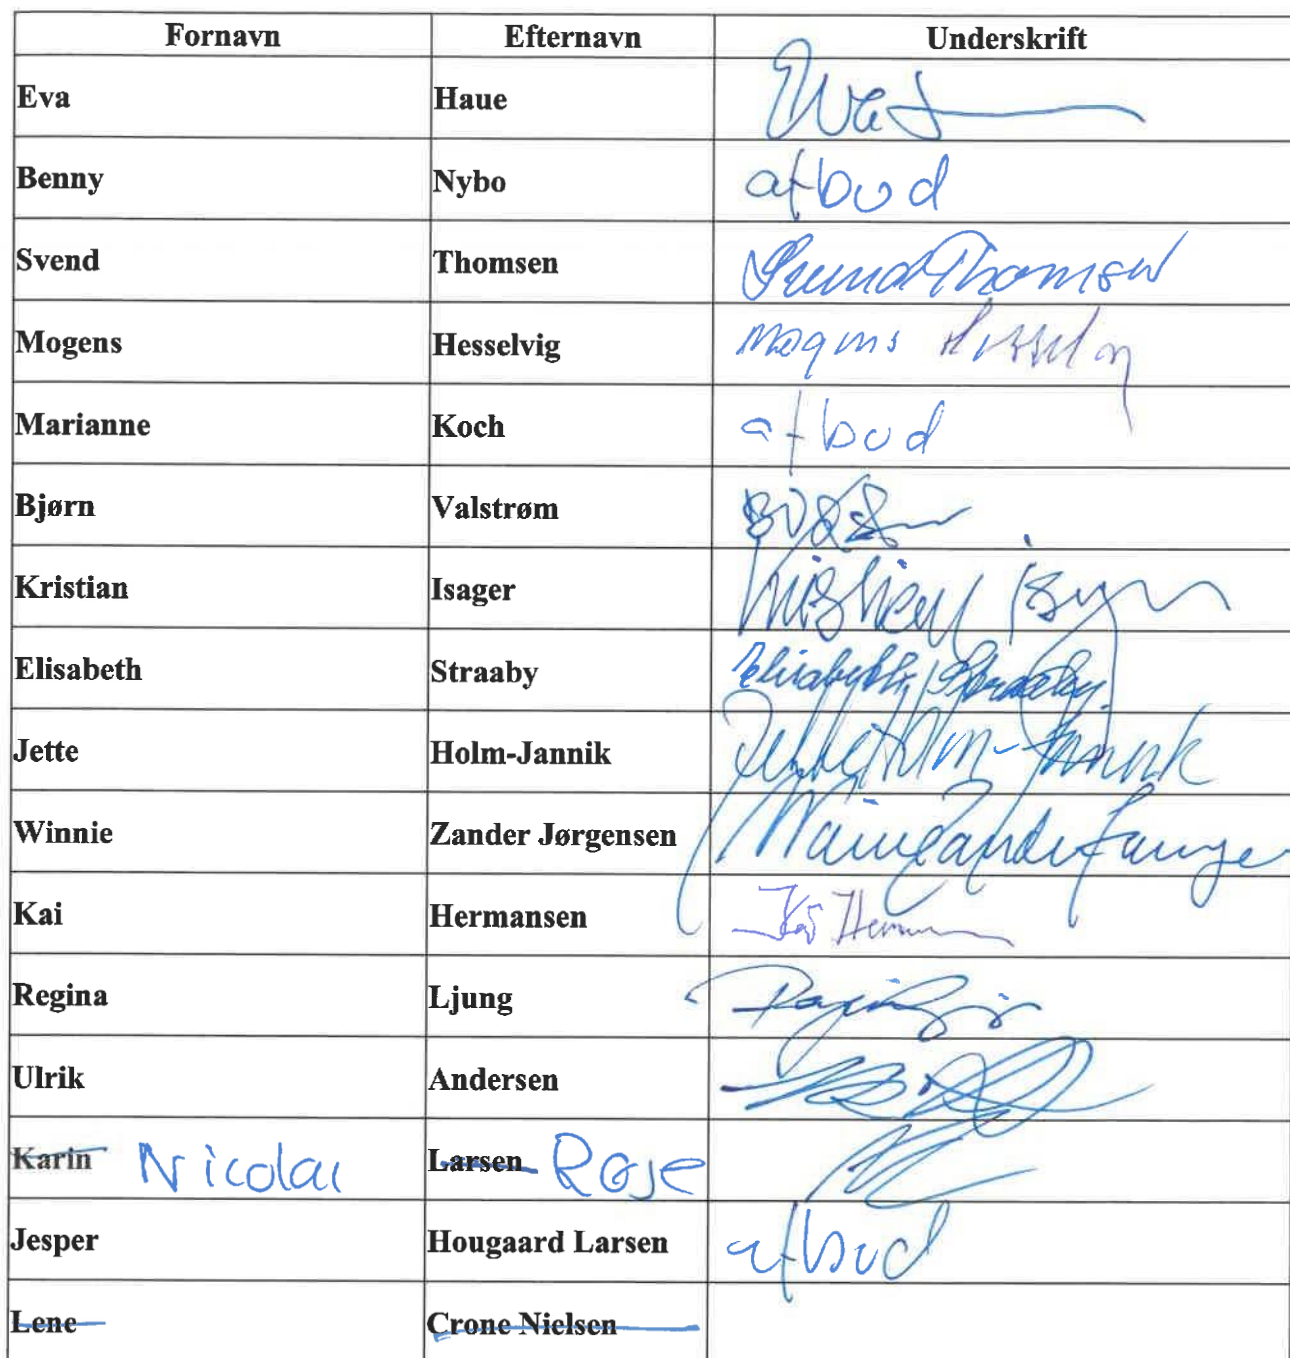 Fornavn Efternavn Underskrift
Eva Haue
Benny Nybo afbud
Svend Thomsen Svend Thomsen
Mogens Hesselvig Mogens
Marianne Koch afbud
Bjørn Valstrøm
Kristian Isager Kristian Isager
Elisabeth Straaby Elisabeth Straaby
Jette Holm-Jannik Jette Holm-Jannik
Winnie Zander Jørgensen
Kai Hermansen Kai
Regina Ljung
Ulrik Andersen
Karin Nicolai Larsen Rose
Jesper Hougaard Larsen afbud
Lene Crone Nielsen